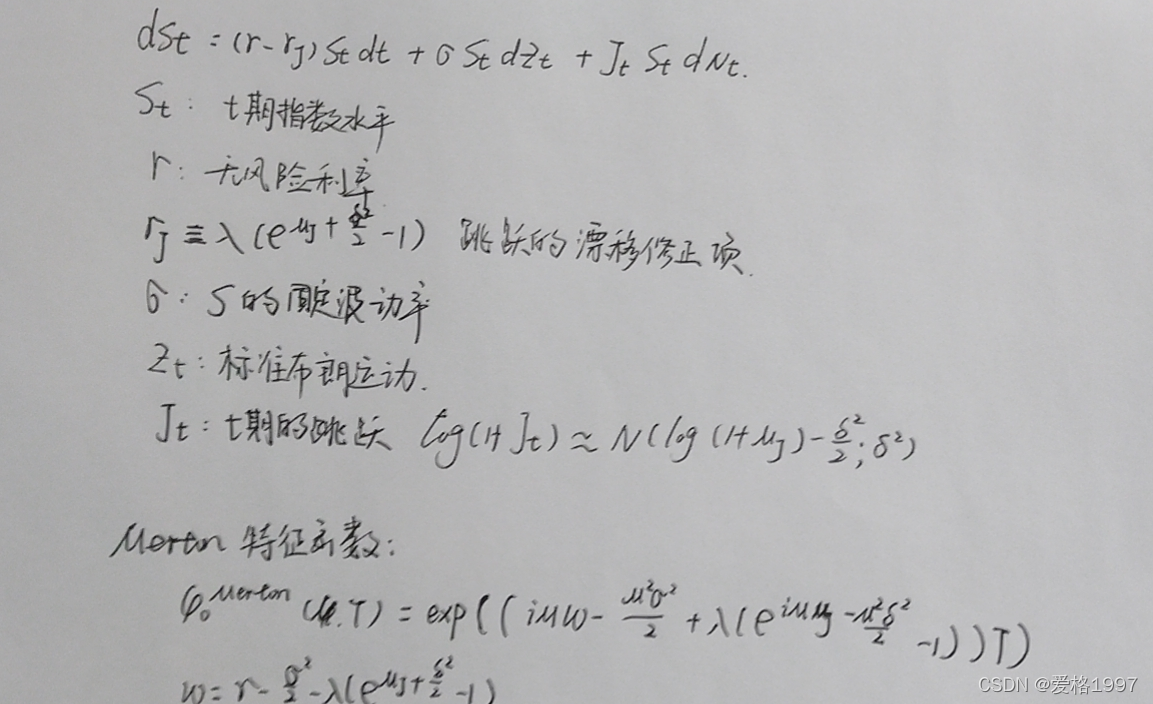 dSt = (r-rJ) St dt + σ St dZt + Jt St dNt.
St: t期指数水平
r: 无风险利率
rJ ≡ λ(e^{μJ + δ²/2} -1) 跳跃的漂移修正项.
σ: S的固定波动率
Zt: 标准布朗运动.
Jt: t期的跳跃 log(1+Jt) ≈ N(log(1+μJ) - δ²/2; δ²)
Merton 特征函数:
φ₀^{Merton} (u.T) = exp((iuω - u²σ²/2 + λ(e^{iuμJ - u²δ²/2} -1))T)
ω = r - σ²/2 - λ(e^{μJ + δ²/2} -1)
CSDN @爱格1997